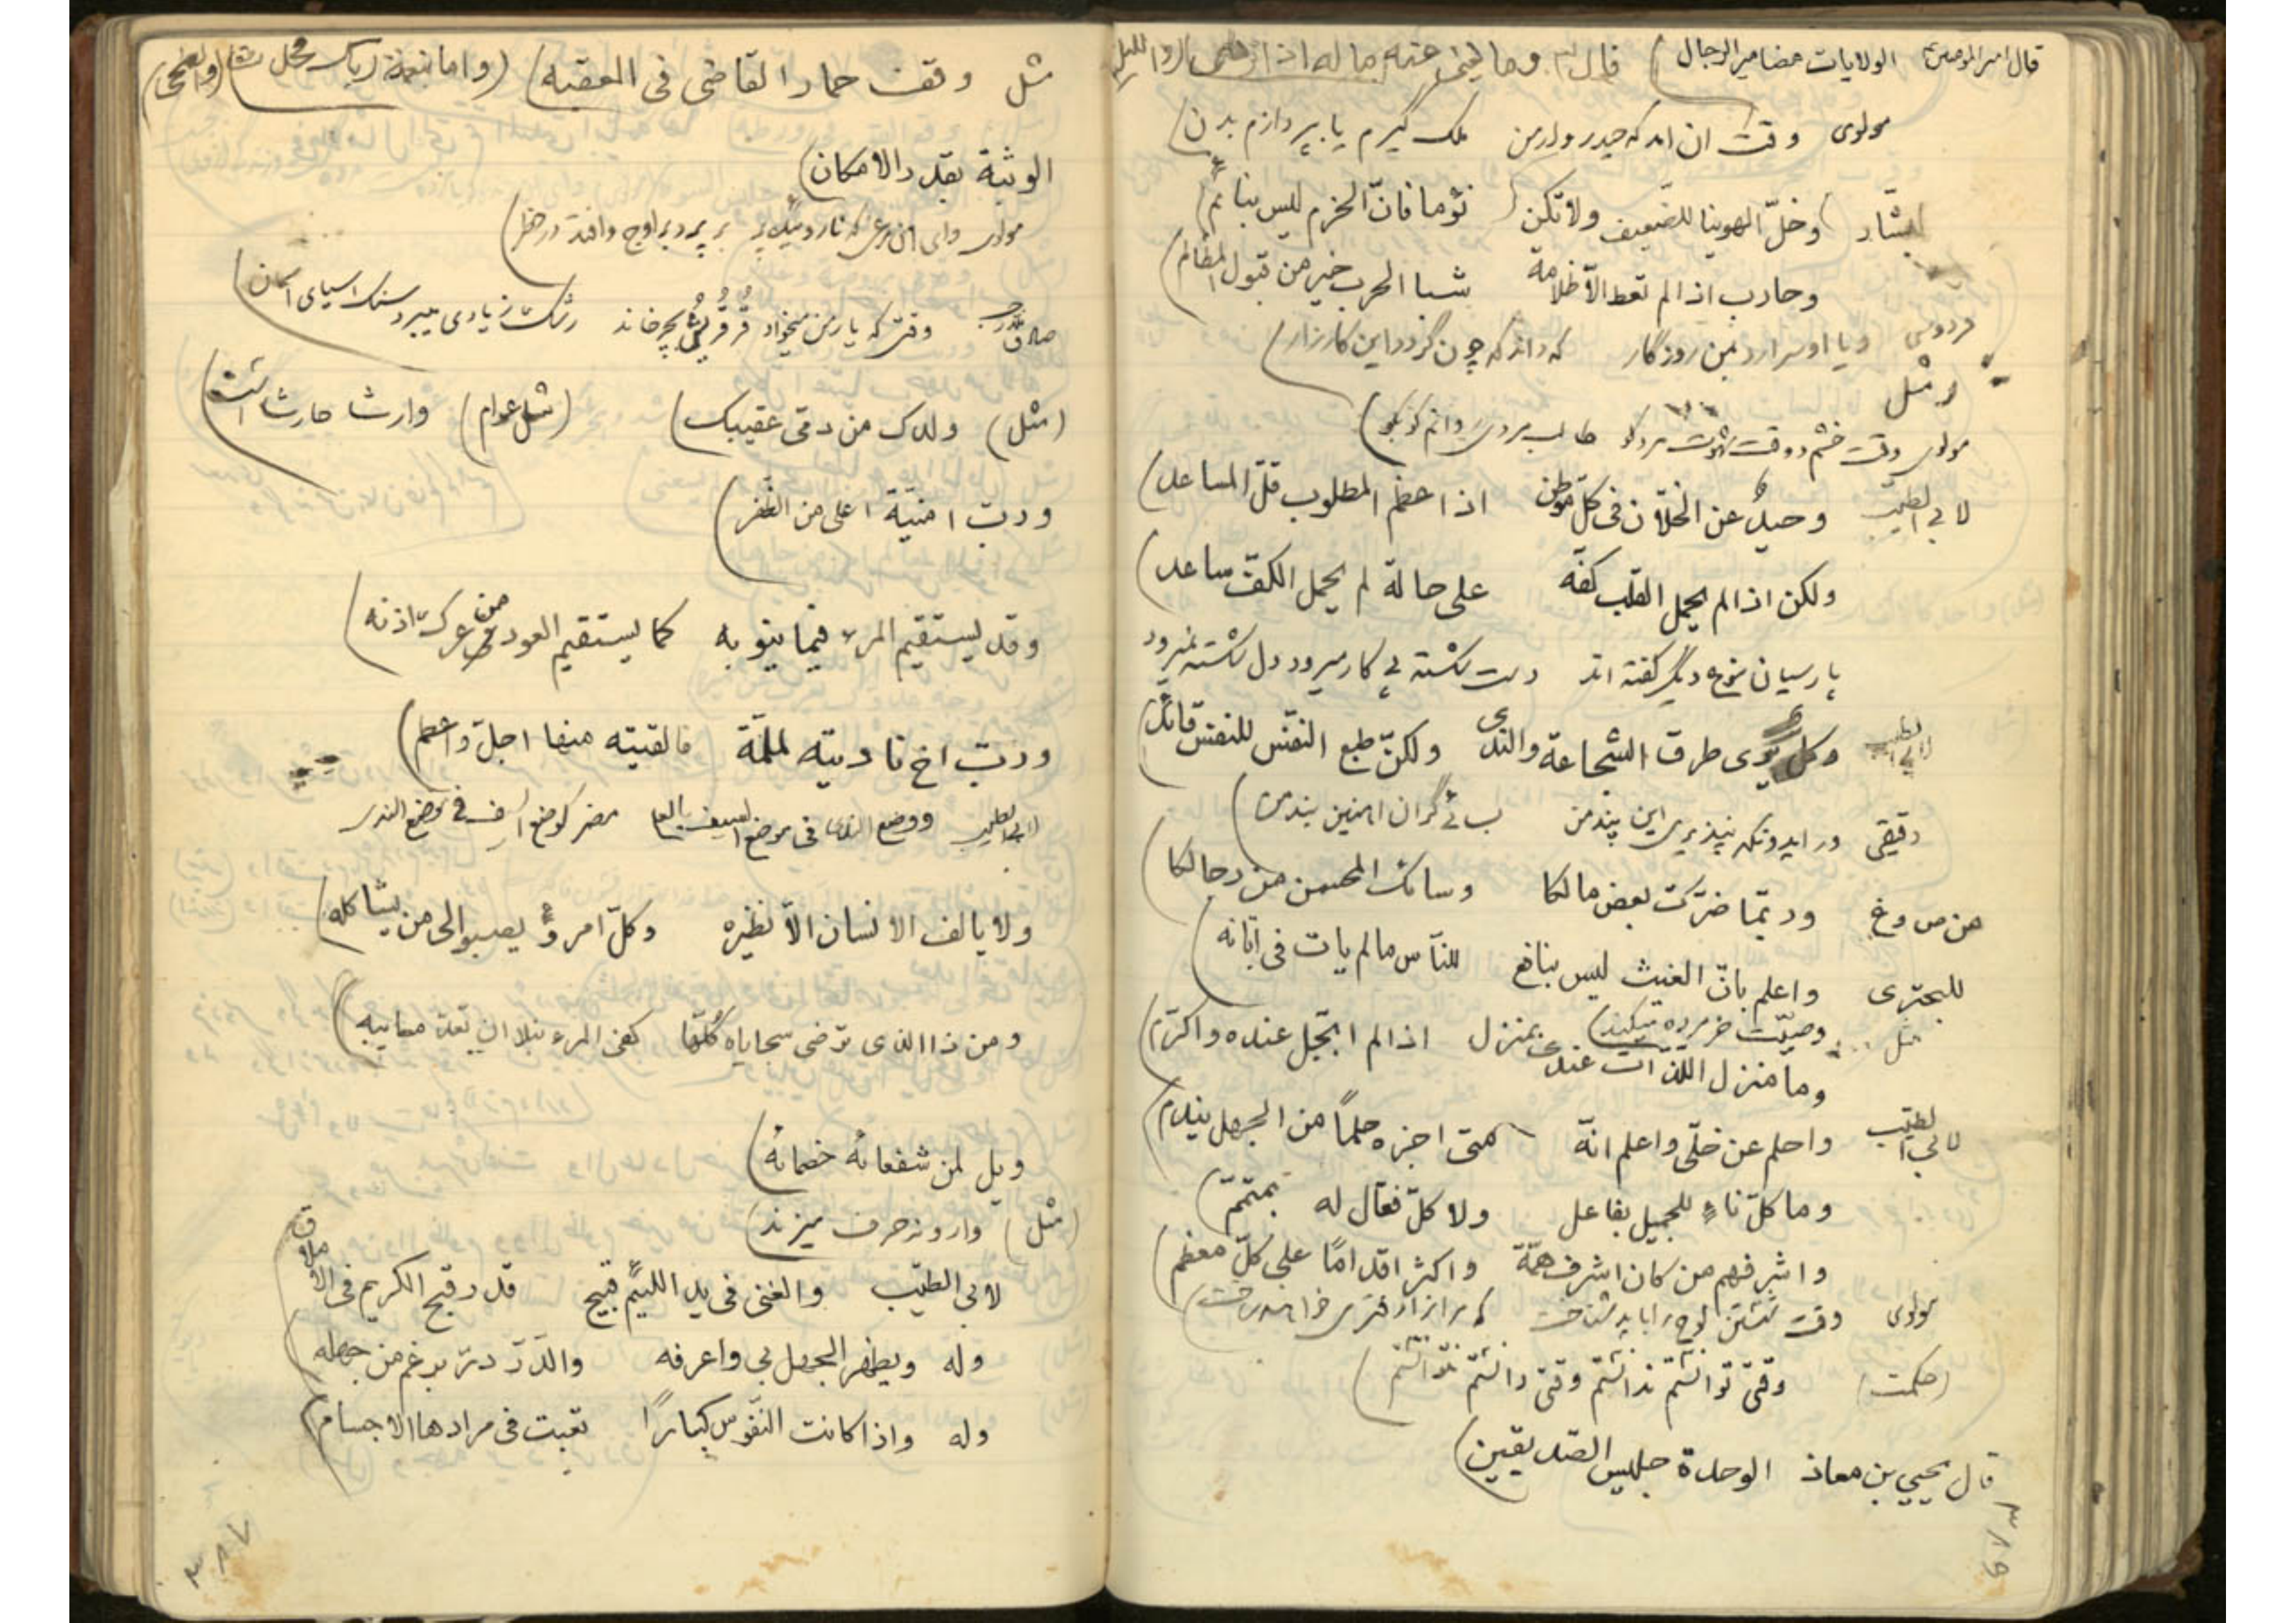 قال امیرالمومنین الولایات مضامیر الرجال) قال وما یغنی عنه ماله اذا تردی واللیل
مولوی وقت ان امد که حیدروار من ملک گیرم یا بپردازم بدن)
لبشار وخلّ الهوینا للضعیف ولا تکن نؤما فانّ الحزم لیس بنائم)
وحارب اذا لم تعط الاّ ظلامة شبا الحرب خیر من قبول المظالم)
فردوسی که داند که چون گردد این کارزار)
مثل
مولوی وقت خشم و وقت شهوت مرد کو طالب مردی دوانم کو بکو)
لابی الطیّب وحیدٌ عن الخلاّن فی کلّ موطن اذا عظم المطلوب قلّ المساعد)
ولکن اذا لم یحمل القلب کفّه علی حالة لم یحمل الکفّ ساعد)
پارسیان نوع دیگر گفته اند دست شکسته پی کار میرود دل شکسته نمیرود
لابی الطیب وکل یری طرق الشجاعة والندی ولکنّ طبع النفس للنفس قائد)
دقیقی ور ایدونکه نپذیری این پند من بند من)
من ص وغ وربّما ضرّکت بعض مالکا وسائک المحسن من رجالکا)
للبحتری واعلم بانّ الغیث لیس بنافع للنآس مالم یات فی ابّانه)
مثل وصیّت خر مرده میکند)
وما منزل اللذّات عندی بمنزل اذا لم ابجّل عنده واکرّم)
لابی الطیّب واحلم عن خلّی واعلم انّه متی اجزه حلماً من الجهل یندم)
وما کلّ ناءٍ للجمیل بفاعل ولا کلّ فعّال له بمتمّم)
واشرفهم من کان اشرف همّة واکثر اقداماً علی کلّ معظم)
مولوی وقت
(حکمت) وقتی توانستم ندانستم وقتی دانستم نتوانستم)
قال یحیی بن معاذ الوحدة جلیس الصّدیقین)
مثل وقف حمار القاضی فی العقبه) (واما بنعمة ربک فحدّث (والضحی)
الوثبة بقدر الامکان)
مولوی وای ان مرغی که ناروئیده پر بر پرد بر اوج وافتد در خطر)
وقتی که یار من میخواد قُر قُر بُ چرخاند سنک اسیای اسمان)
(مثل) ولدک من دمّی عقیبک) (مثل عوام) وارث حارث است)
وربّ امنیّة احلی من الظّفر)
وقد یستقیم المرء فیما ینوبه کما یستقیم العود من عرک اذنه)
وربّ اخ نادیته لملمّة فالفیته منها اجلّ واعظم)
لابی الطیب ووضع الندی فی موضع السیف بالعلا مضر کوضع السیف فی موضع الندی
ولا یالف الانسان الاّ نظیره وکلّ امرءٍ یصبو الی من یشاکله)
ومن ذا الذی ترضی سجایاه کُلّها کفی المرء نبلا ان تعدّ معایبه)
ویل لمن شفعائه خصمائه)
(مثل) وارونه حرف میزند)
لابی الطیّب والغنی فی ید اللئیم قبیح قدر قبح الکریم فی الاملاق)
وله ویظهر الجهل بی واعرفه والدّرّ درّ برغم من جهله)
وله واذا کانت النفوس کباراً تعبت فی مرادها الاجسام)